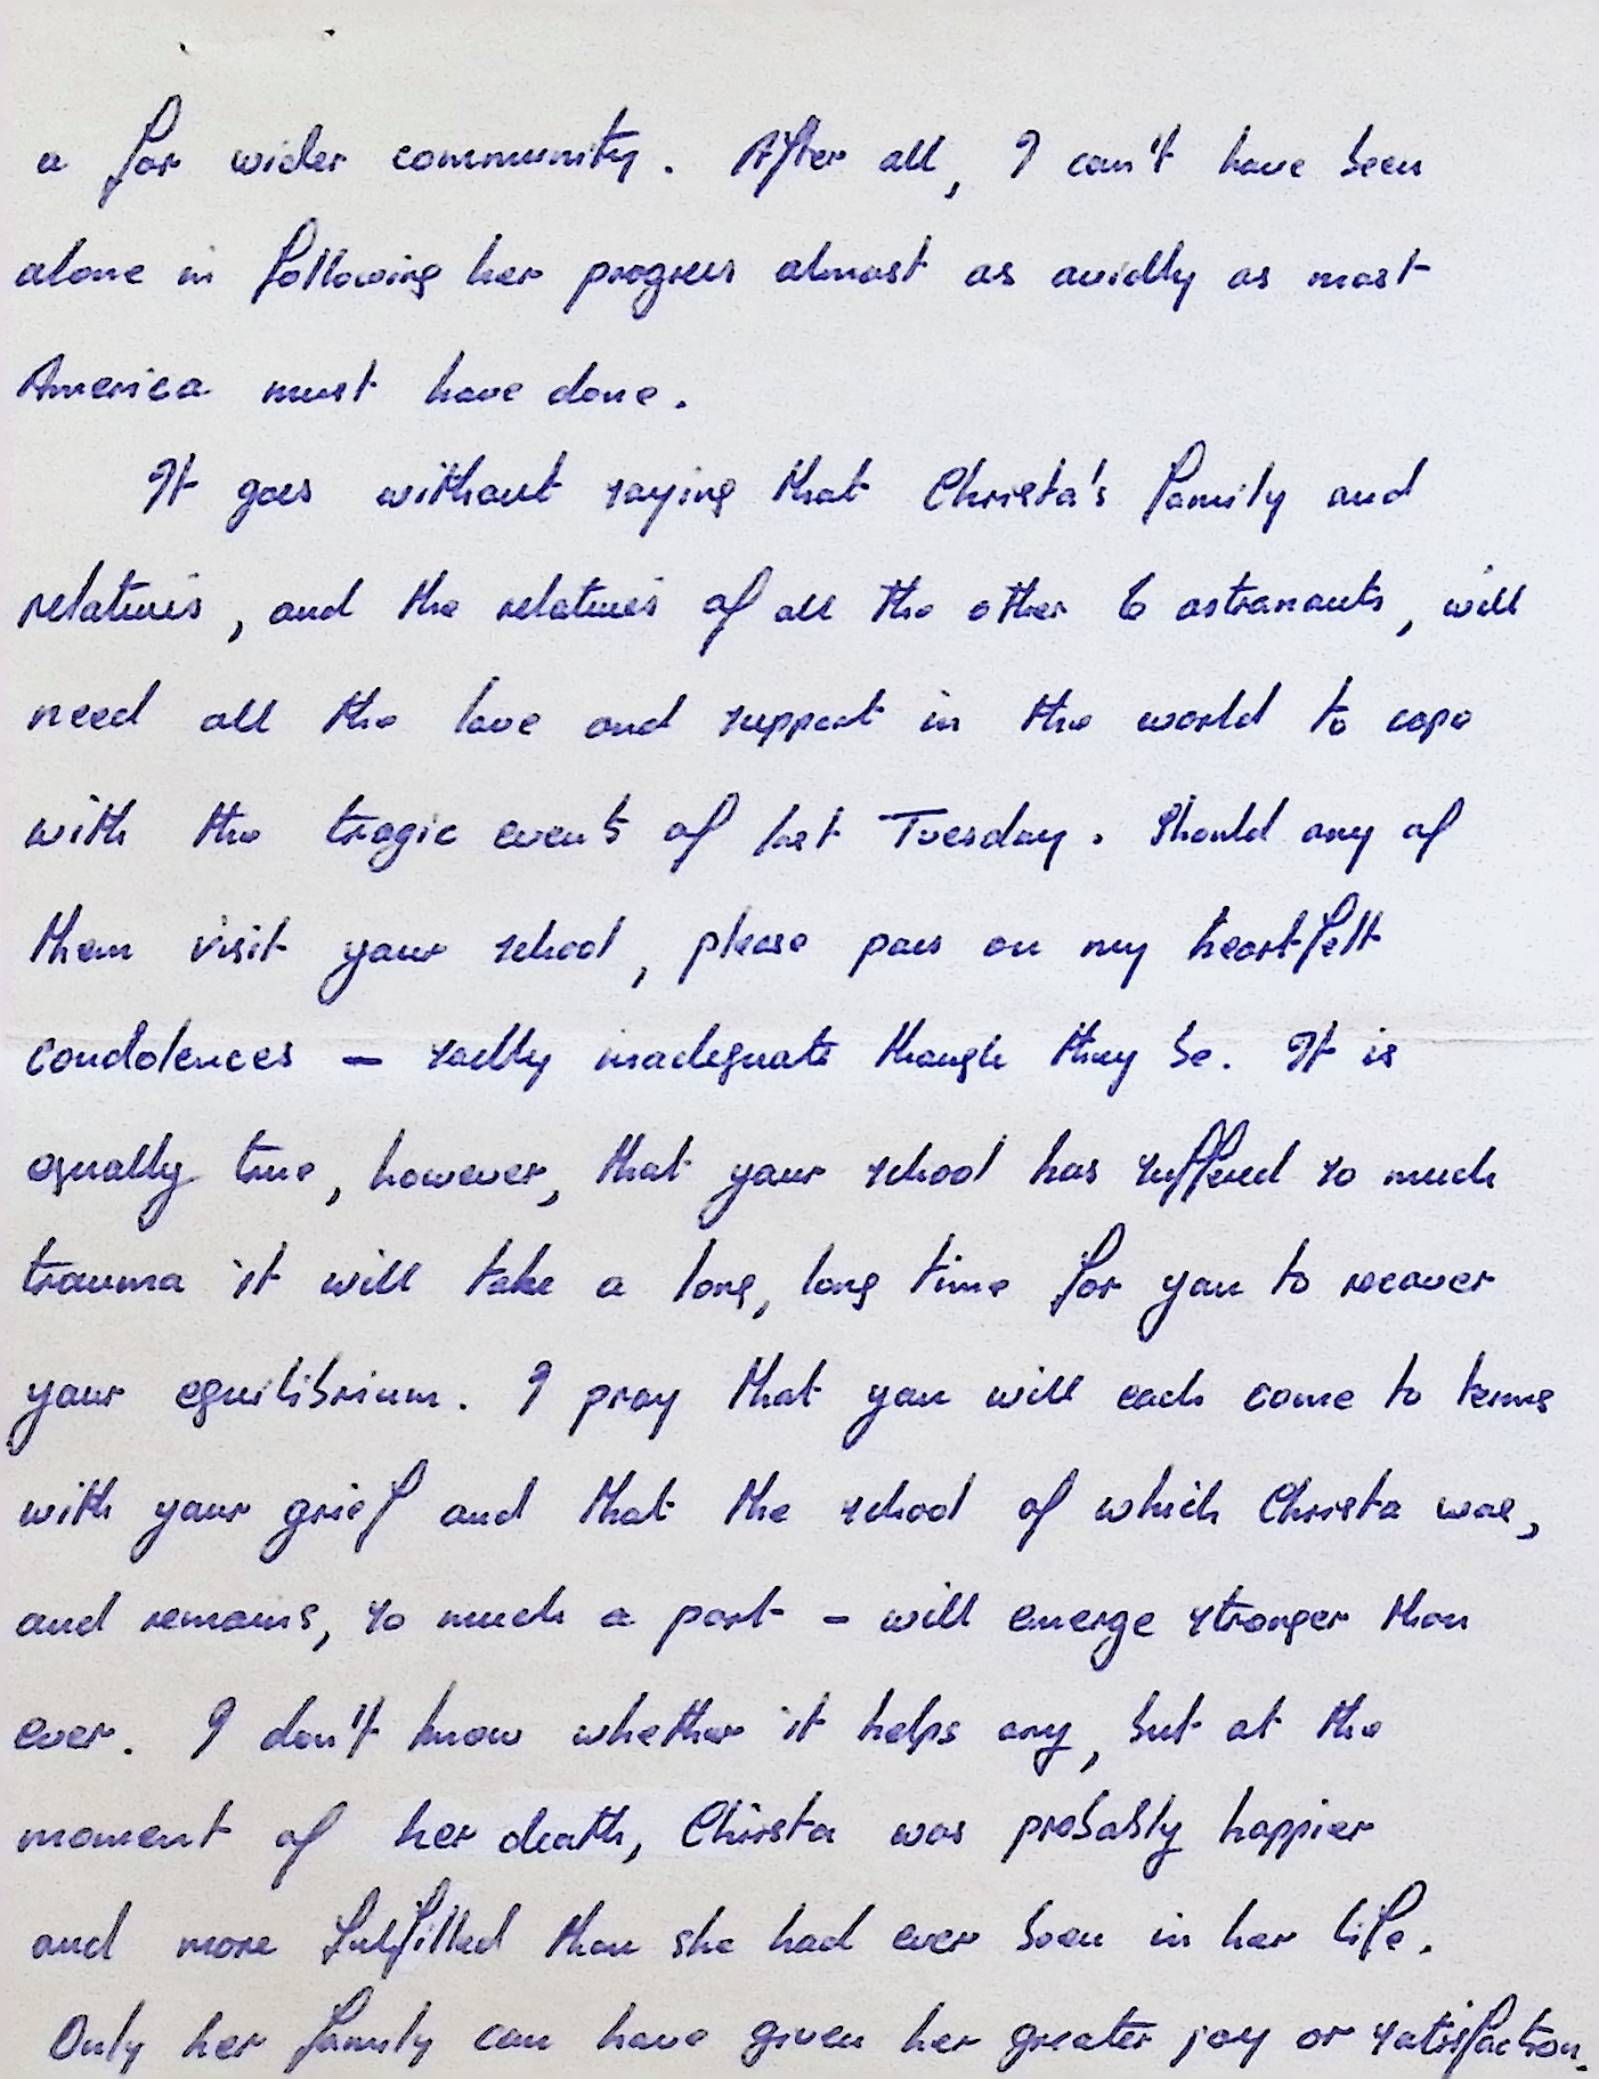 a far wider community. After all, I can't have been
alone in following her progress almost as avidly as most
America must have done.
It goes without saying that Christa's family and
relatives, and the relatives of all the other 6 astronauts, will
need all the love and support in the world to cope
with the tragic events of last Tuesday. Should any of
them visit your school, please pass on my heartfelt
condolences – sadly inadequate though they be. It is
equally true, however, that your school has suffered so much
trauma it will take a long, long time for you to recover
your equilibrium. I pray that you will each come to terms
with your grief and that the school of which Christa was,
and remains, so much a part – will emerge stronger than
ever. I don't know whether it helps any, but at the
moment of her death, Christa was probably happier
and more fulfilled than she had ever been in her life.
Only her family can have given her greater joy or satisfaction.